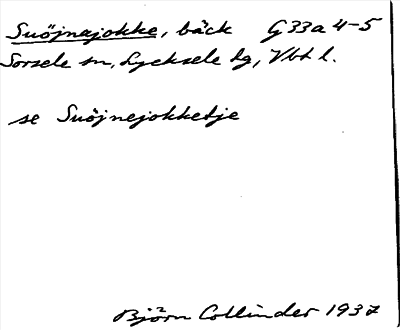 Suöjnajokke, bäck G33a 4-5
Sorsele sn, Lycksele lg, Vbt l.
se Suöjnejokketje
Björn Collinder 1937